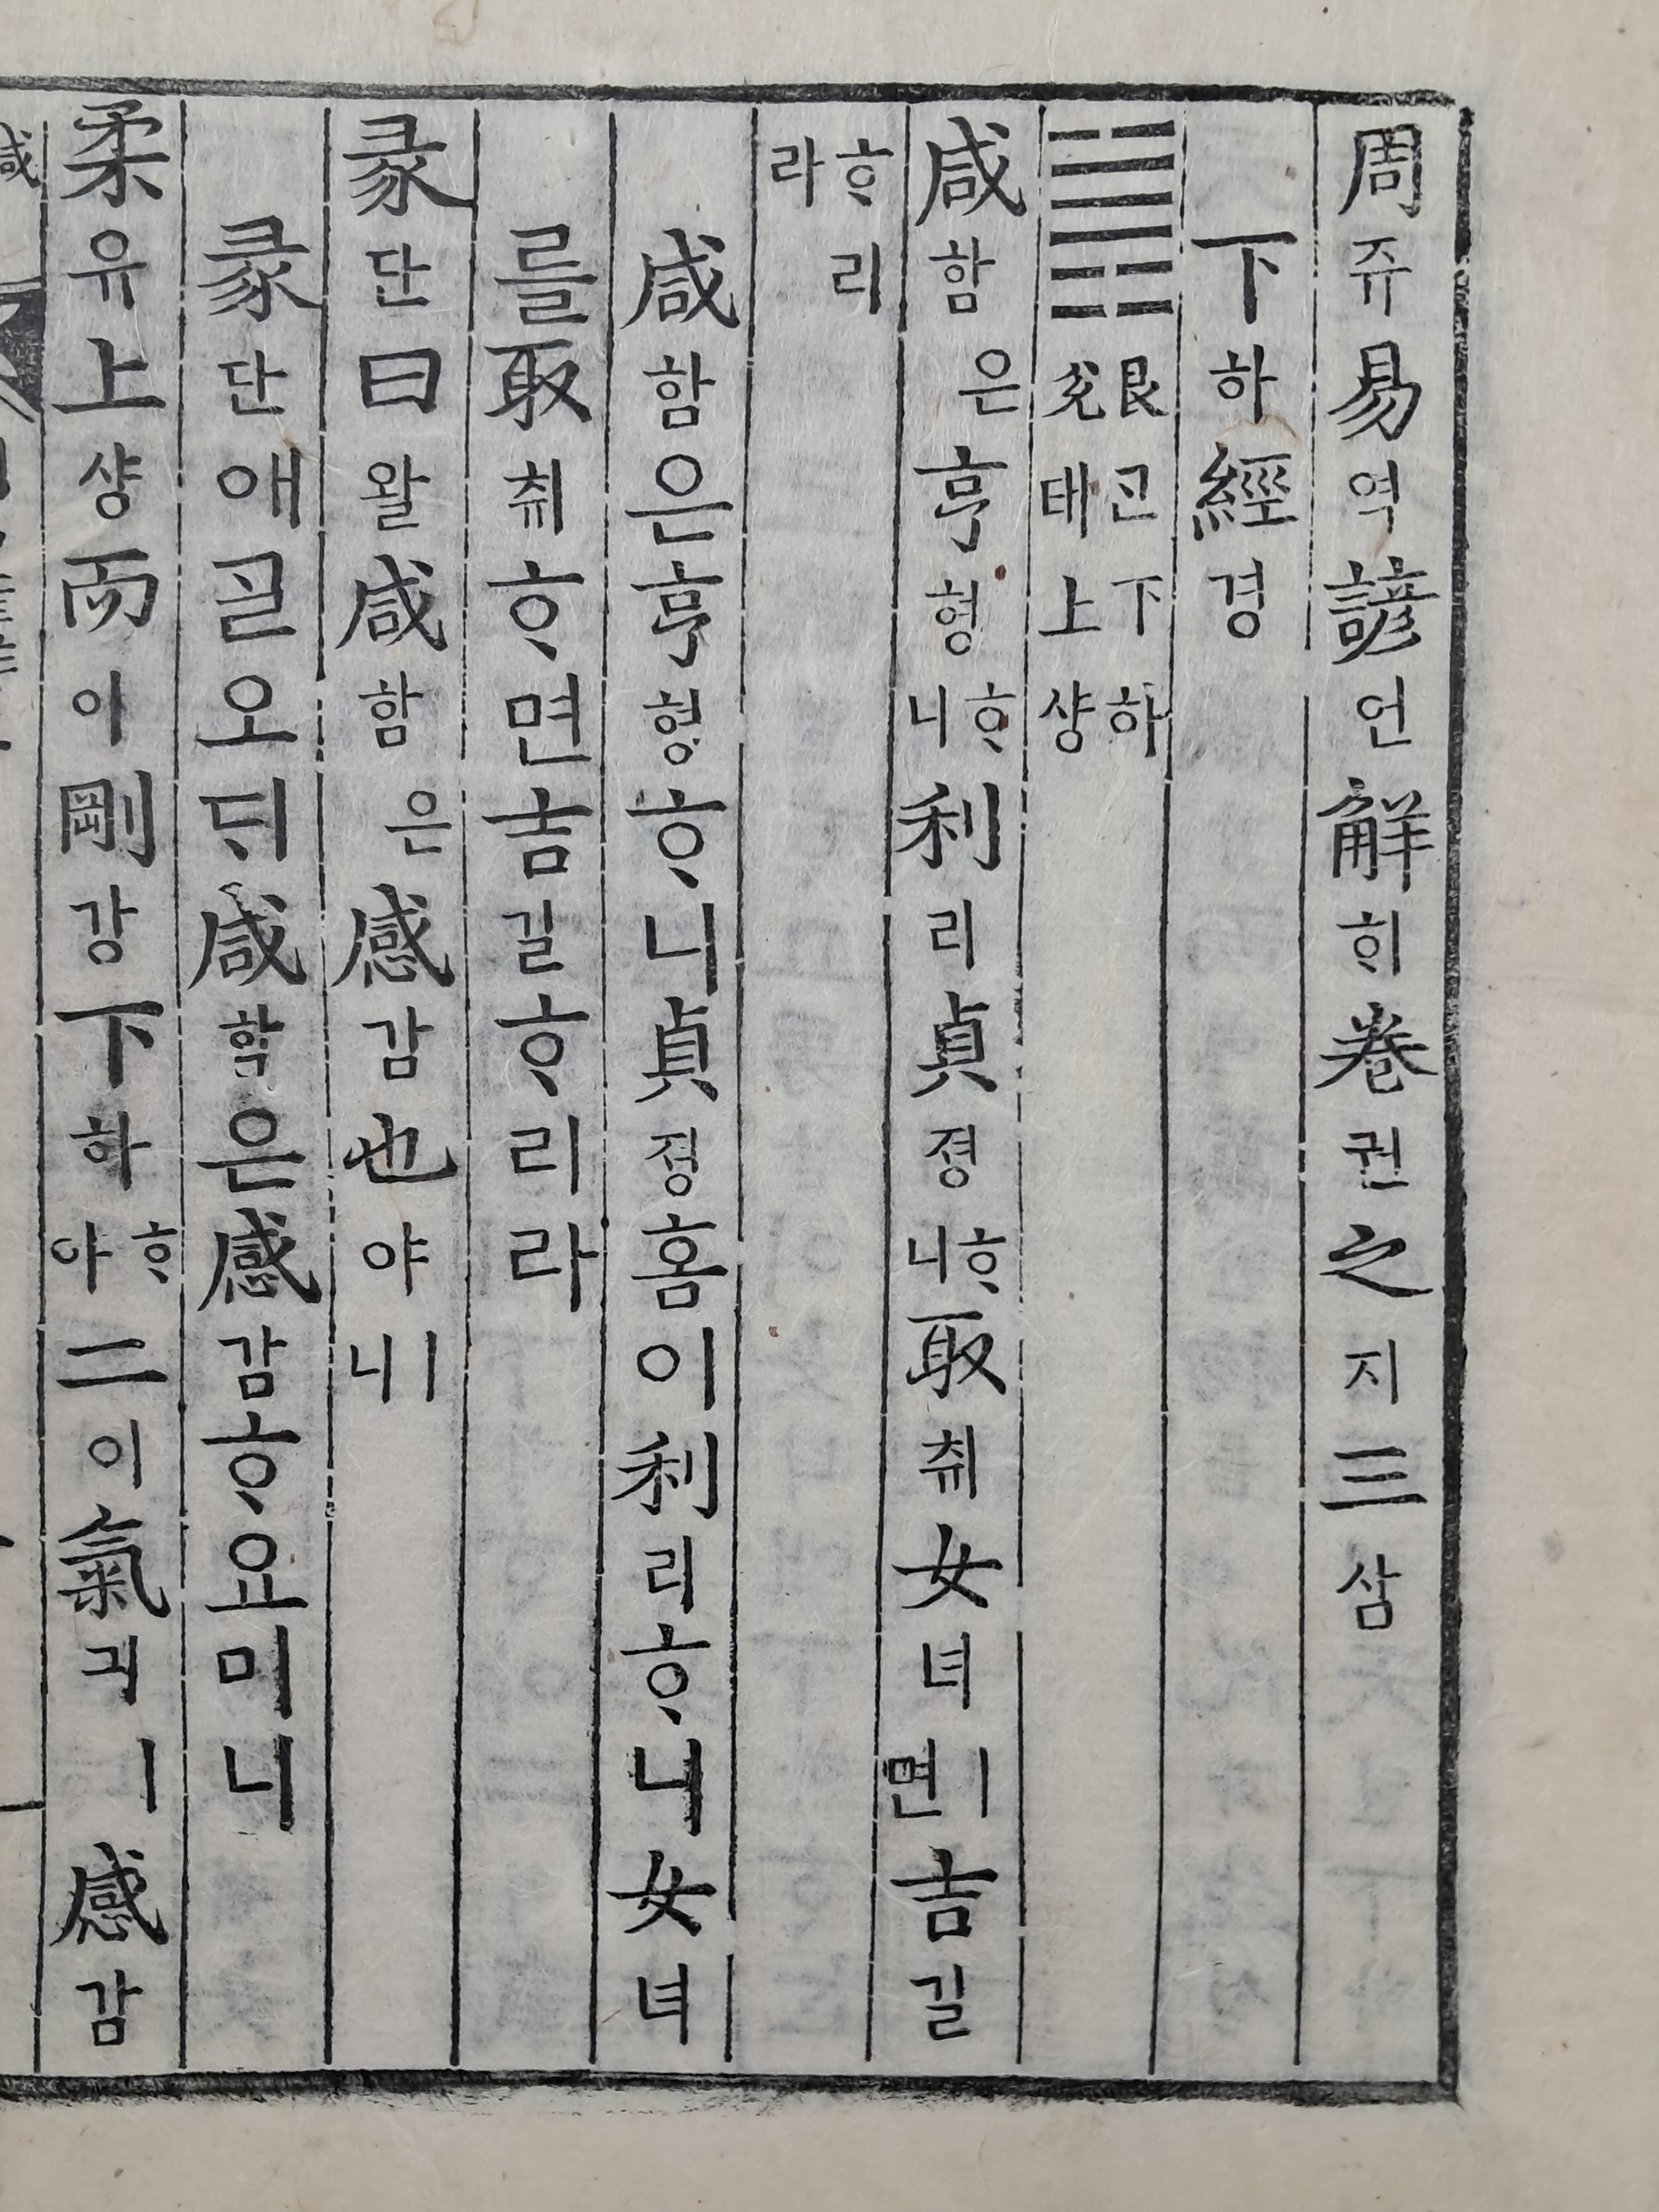 周쥬易역諺언解ᄒᆡ卷권之지三삼
下하經경
䷞艮ᄀᆞᆫ下하兌태上샹
咸함은亨형ᄒᆞ니利리貞졍ᄒᆞ니取ᄎᆔ女녀ㅣ면吉길
ᄒᆞ리라
咸함은亨형ᄒᆞ니貞졍홈이利리ᄒᆞ니女녀
를取ᄎᆔᄒᆞ면吉길ᄒᆞ리라
彖단曰왈咸함은感감也야ㅣ니
彖단애ᄀᆞᆯ오ᄃᆡ咸함은感감ᄒᆞ요미니
柔유上샹而이剛강下하ᄒᆞ야二이氣긔ㅣ感감